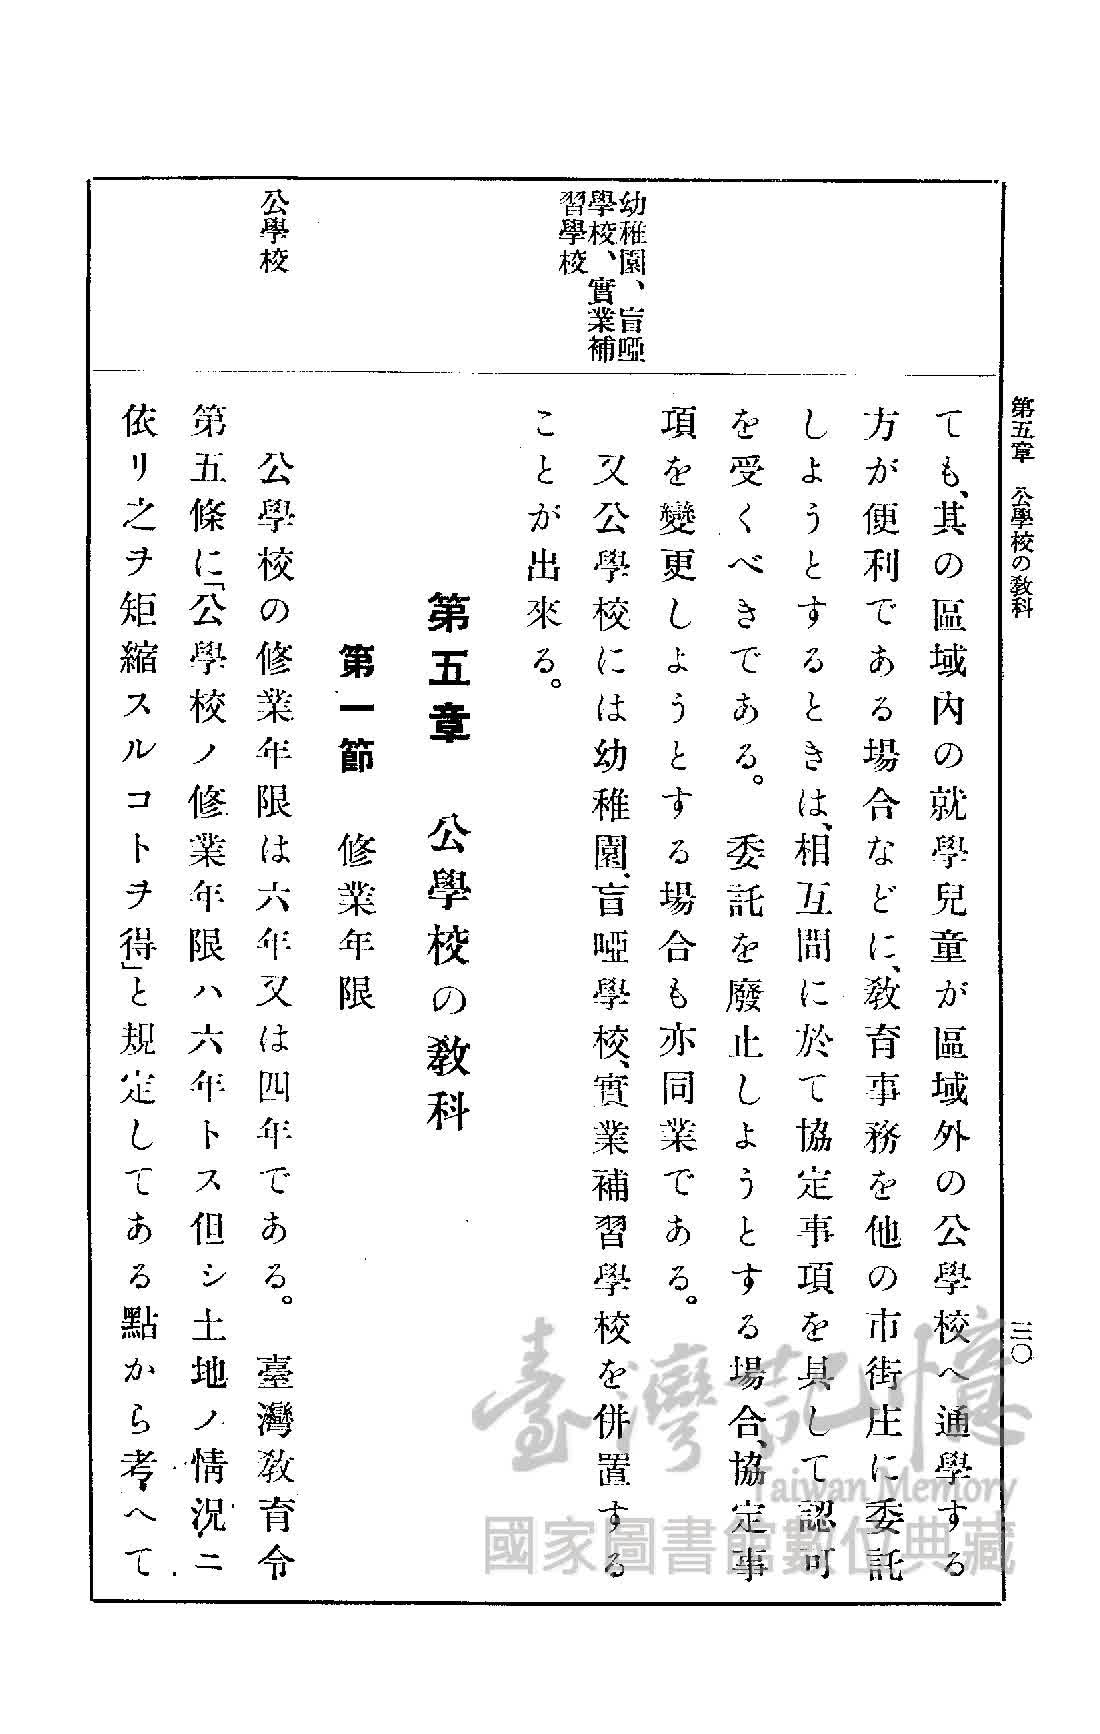 第五章　公學校の教科
三〇
幼稚園、盲啞
學校、實業補
習學校
公學校
ても、其の區域內の就學兒童が區域外の公學校へ通學する
方が便利である場合などに、教育事務を他の市街庄に委託
しようとするときは、相互間に於て協定事項を具して認可
を受くべきである。　委託を廢止しようとする場合、協定事
項を變更しようとする場合も亦同業である。
又公學校には幼稚園、盲啞學校、實業補習學校を併置する
ことが出來る。
第五章　公學校の教科
第一節　修業年限
公學校の修業年限は六年又は四年である。　臺灣教育令
第五條に「公學校ノ修業年限ハ六年トス但シ土地ノ情況ニ
依リ之ヲ矩縮スルコトヲ得」と規定してある點から考へて
臺灣記憶
Taiwan Memory
國家圖書館數位典藏